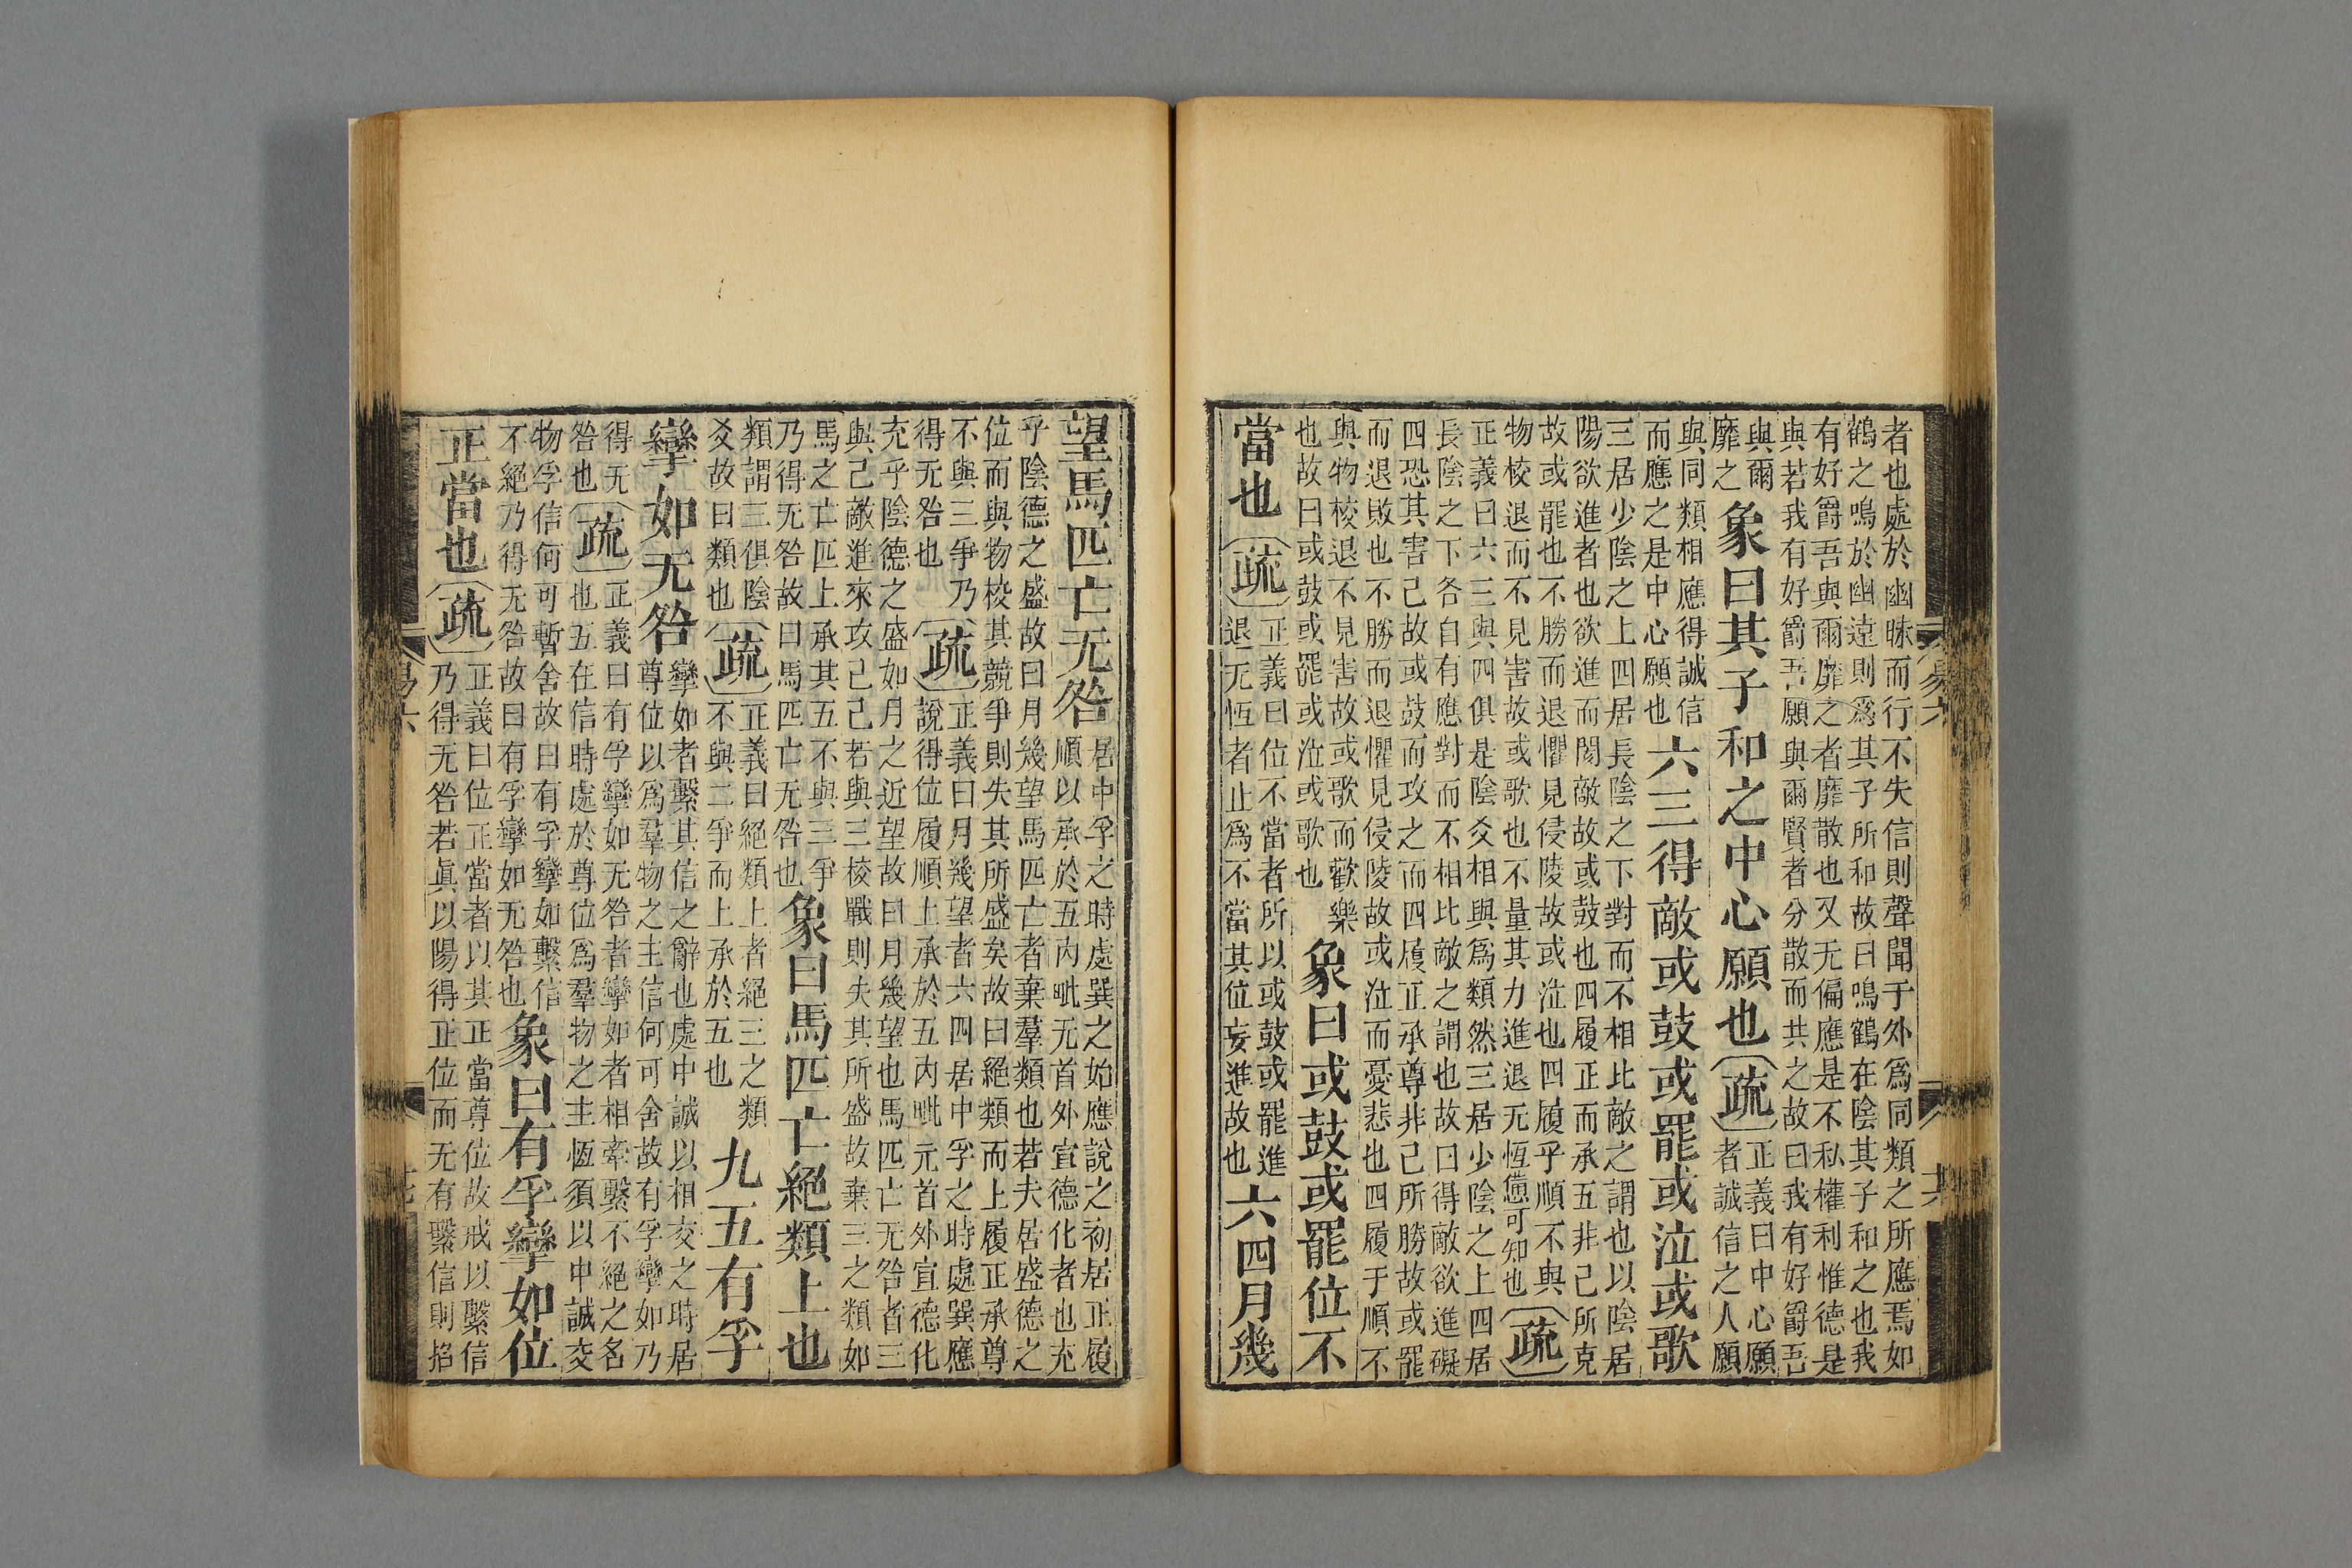 者也處於幽昧而行不失信則聲聞于外爲同類之所應焉如
鶴之鳴於幽遠則爲其子所和故曰鳴鶴在陰其子和之也我
有好爵吾與爾靡之者靡散也又无偏應是不私權利惟德是
與若我有好爵吾願與爾賢者分散而共之故曰我有好爵吾
與爾
靡之
象曰其子和之中心願也
疏
正義曰中心願
者誠信之人願
與同類相應得誠信
而應之是中心願也
六三得敵或鼓或罷或泣或歌
三居少陰之上四居長陰之下對而不相比敵之謂也以陰居
陽欲進者也欲進而閡敵故或鼓也四履正而承五非己所克
故或罷也不勝而退懼見侵陵故或泣也四履乎順不與
物校退而不見害故或歌也不量其力進退无恆憊可知也
疏
正義曰六三與四俱是陰爻相與爲類然三居少陰之上四居
長陰之下各自有應對而不相比敵之謂也故曰得敵欲進礙
四恐其害己故或鼓而攻之而四履正承尊非己所勝故或罷
而退敗也不勝而退懼見侵陵故或泣而憂悲也四履于順不
與物校退不見害故或歌而歡樂
也故曰或鼓或罷或泣或歌也
象曰或鼓或罷位不
當也
疏
正義曰位不當者所以或鼓或罷進
退无恆者止爲不當其位妄進故也
六四月幾
望馬匹亡无咎
居中孚之時處巽之始應說之初居正履
順以承於五內毗无首外宣德化者也充
乎陰德之盛故曰月幾望馬匹亡者棄羣類也若夫居盛德之
位而與物校其競爭則失其所盛矣故曰絕類而上履正承尊
不與三爭乃
得无咎也
疏
正義曰月幾望者六四居中孚之時處巽應
說得位履順上承於五內毗元首外宣德化
充乎陰德之盛如月之近望故曰月幾望也馬匹亡无咎者三
與己敵進來攻己己若與三校戰則失其所盛故棄三之類如
馬之亡匹上承其五不與三爭
乃得无咎故曰馬匹亡无咎也
象曰馬匹亡絕類上也
類謂三俱陰
爻故曰類也
疏
正義曰絕類上者絕三之類
不與二爭而上承於五也
九五有孚
攣如无咎
攣如者繫其信之辭也處中誠以相交之時居
尊位以爲羣物之主信何可舍故有孚攣如乃
得无
咎也
疏
正義曰有孚攣如无咎者攣如者相牽繫不絕之名
也五在信時處於尊位爲羣物之主恆須以中誠交
物孚信何可暫舍故曰有孚攣如繫信
不絕乃得无咎故曰有孚攣如无咎也
象曰有孚攣如位
正當也
疏
正義曰位正當者以其正當尊位故戒以繫信
乃得无咎若眞以陽得正位而无有繫信則招
易六